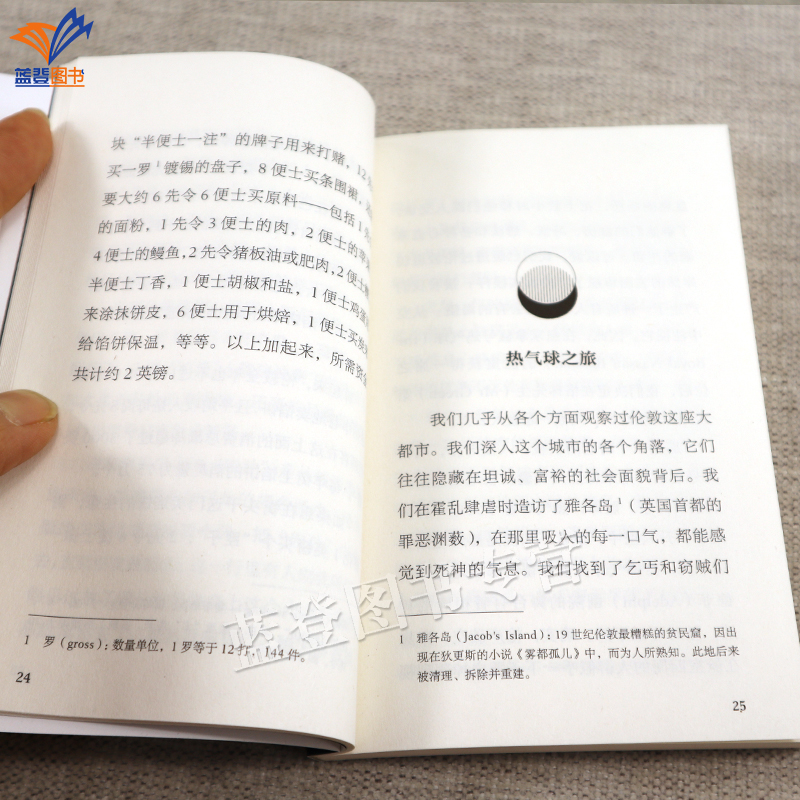 蓝登图书
块“半便士一注”的牌子用来打赌，12
买一罗1镀锡的盘子，8便士买条围裙，
要大约6先令6便士买原料——包括1先
的面粉，1先令3便士的肉，2便士的
4便士的鳗鱼，2先令猪板油或肥肉，2便士
半便士丁香，1便士胡椒和盐，1便士鸡蛋
来涂抹饼皮，6便士用于烘焙，1便士买
给馅饼保温，等等。以上加起来，所需资
共计约2英镑。
1 罗（gross）：数量单位，1罗等于12打，144件。
24
热气球之旅
我们几乎从各个方面观察过伦敦这座大
都市。我们深入这个城市的各个角落，它们
往往隐藏在坦诚、富裕的社会面貌背后。我
们在霍乱肆虐时造访了雅各岛1（英国首都的
罪恶渊薮），在那里吸入的每一口气，都能感
觉到死神的气息。我们找到了乞丐和窃贼们
1 雅各岛（Jacob's Island）：19世纪伦敦最糟糕的贫民窟，因出
现在狄更斯的小说《雾都孤儿》中，而为人所熟知。此地后来
被清理、拆除并重建。
25
蓝登图书专营